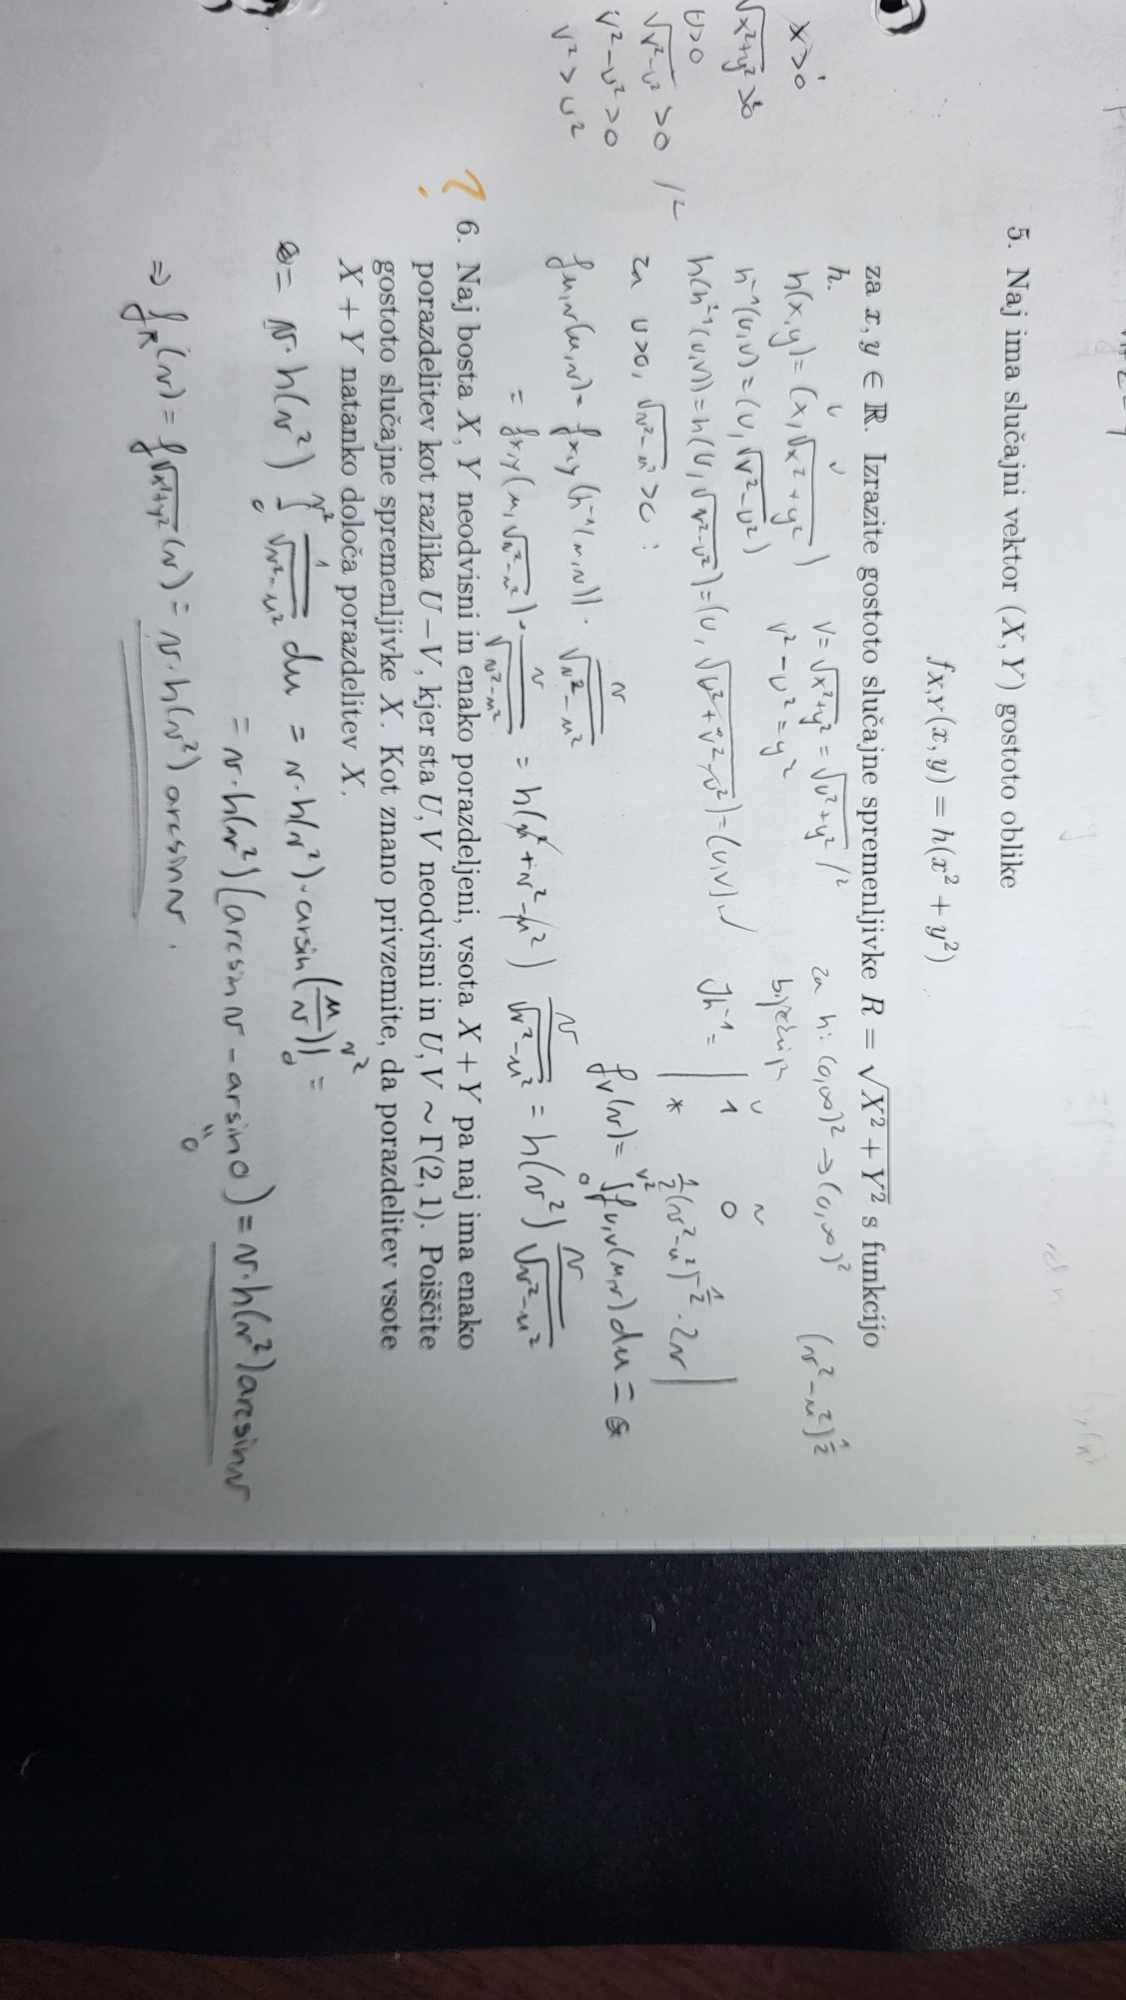 5. Naj ima slučajni vektor (X, Y) gostoto oblike
f_{X,Y}(x, y) = h(x² + y²)
za x, y ∈ ℝ. Izrazite gostoto slučajne spremenljivke R = √(X² + Y²) s funkcijo
h.
h(x,y) = (x, √(x²+y²))
V = √(x²+y²) = √(u²+y²) /²
v² - u² = y²
za h: (0,∞)² → (0,∞)²
(v²-u²)^{1/2}
x>0
√(x²+y²) > 0
u>0
√(v²-u²) > 0 /²
v²-u²>0
v² > u²
h⁻¹(u,v) = (u, √(v²-u²))
h(h⁻¹(u,v)) = h(u, √(v²-u²)) = (u, √(u²+v²-u²)) = (u,v) ✓
Jh⁻¹ = | 1 0
* ½(v²-u²)^{-1/2} · 2v |
za u>0, √(v²-u²) > 0 :
f_V(v) = ∫₀^{v²} f_{U,V}(u,v) du =
f_{U,V}(u,v) = f_{X,Y}(h⁻¹(u,v)) · v/√(v²-u²)
= f_{X,Y}(u, √(v²-u²)) · v/√(v²-u²) = h(u²+v²-u²) v/√(v²-u²) = h(v²) v/√(v²-u²)
? 6. Naj bosta X, Y neodvisni in enako porazdeljeni, vsota X + Y pa naj ima enako
porazdelitev kot razlika U − V, kjer sta U, V neodvisni in U, V ∼ Γ(2, 1). Poiščite
gostoto slučajne spremenljivke X. Kot znano privzemite, da porazdelitev vsote
X + Y natanko določa porazdelitev X.
= v·h(v²) ∫₀^{v²} 1/√(v²-u²) du = v·h(v²)·arsin(u/v)|₀^{v²} =
= v·h(v²)(arcsin v - arsin 0) = v·h(v²) arcsin v
"
0
⇒ f_R(v) = f_{√(x²+y²)}(v) = v·h(v²) arcsin v .